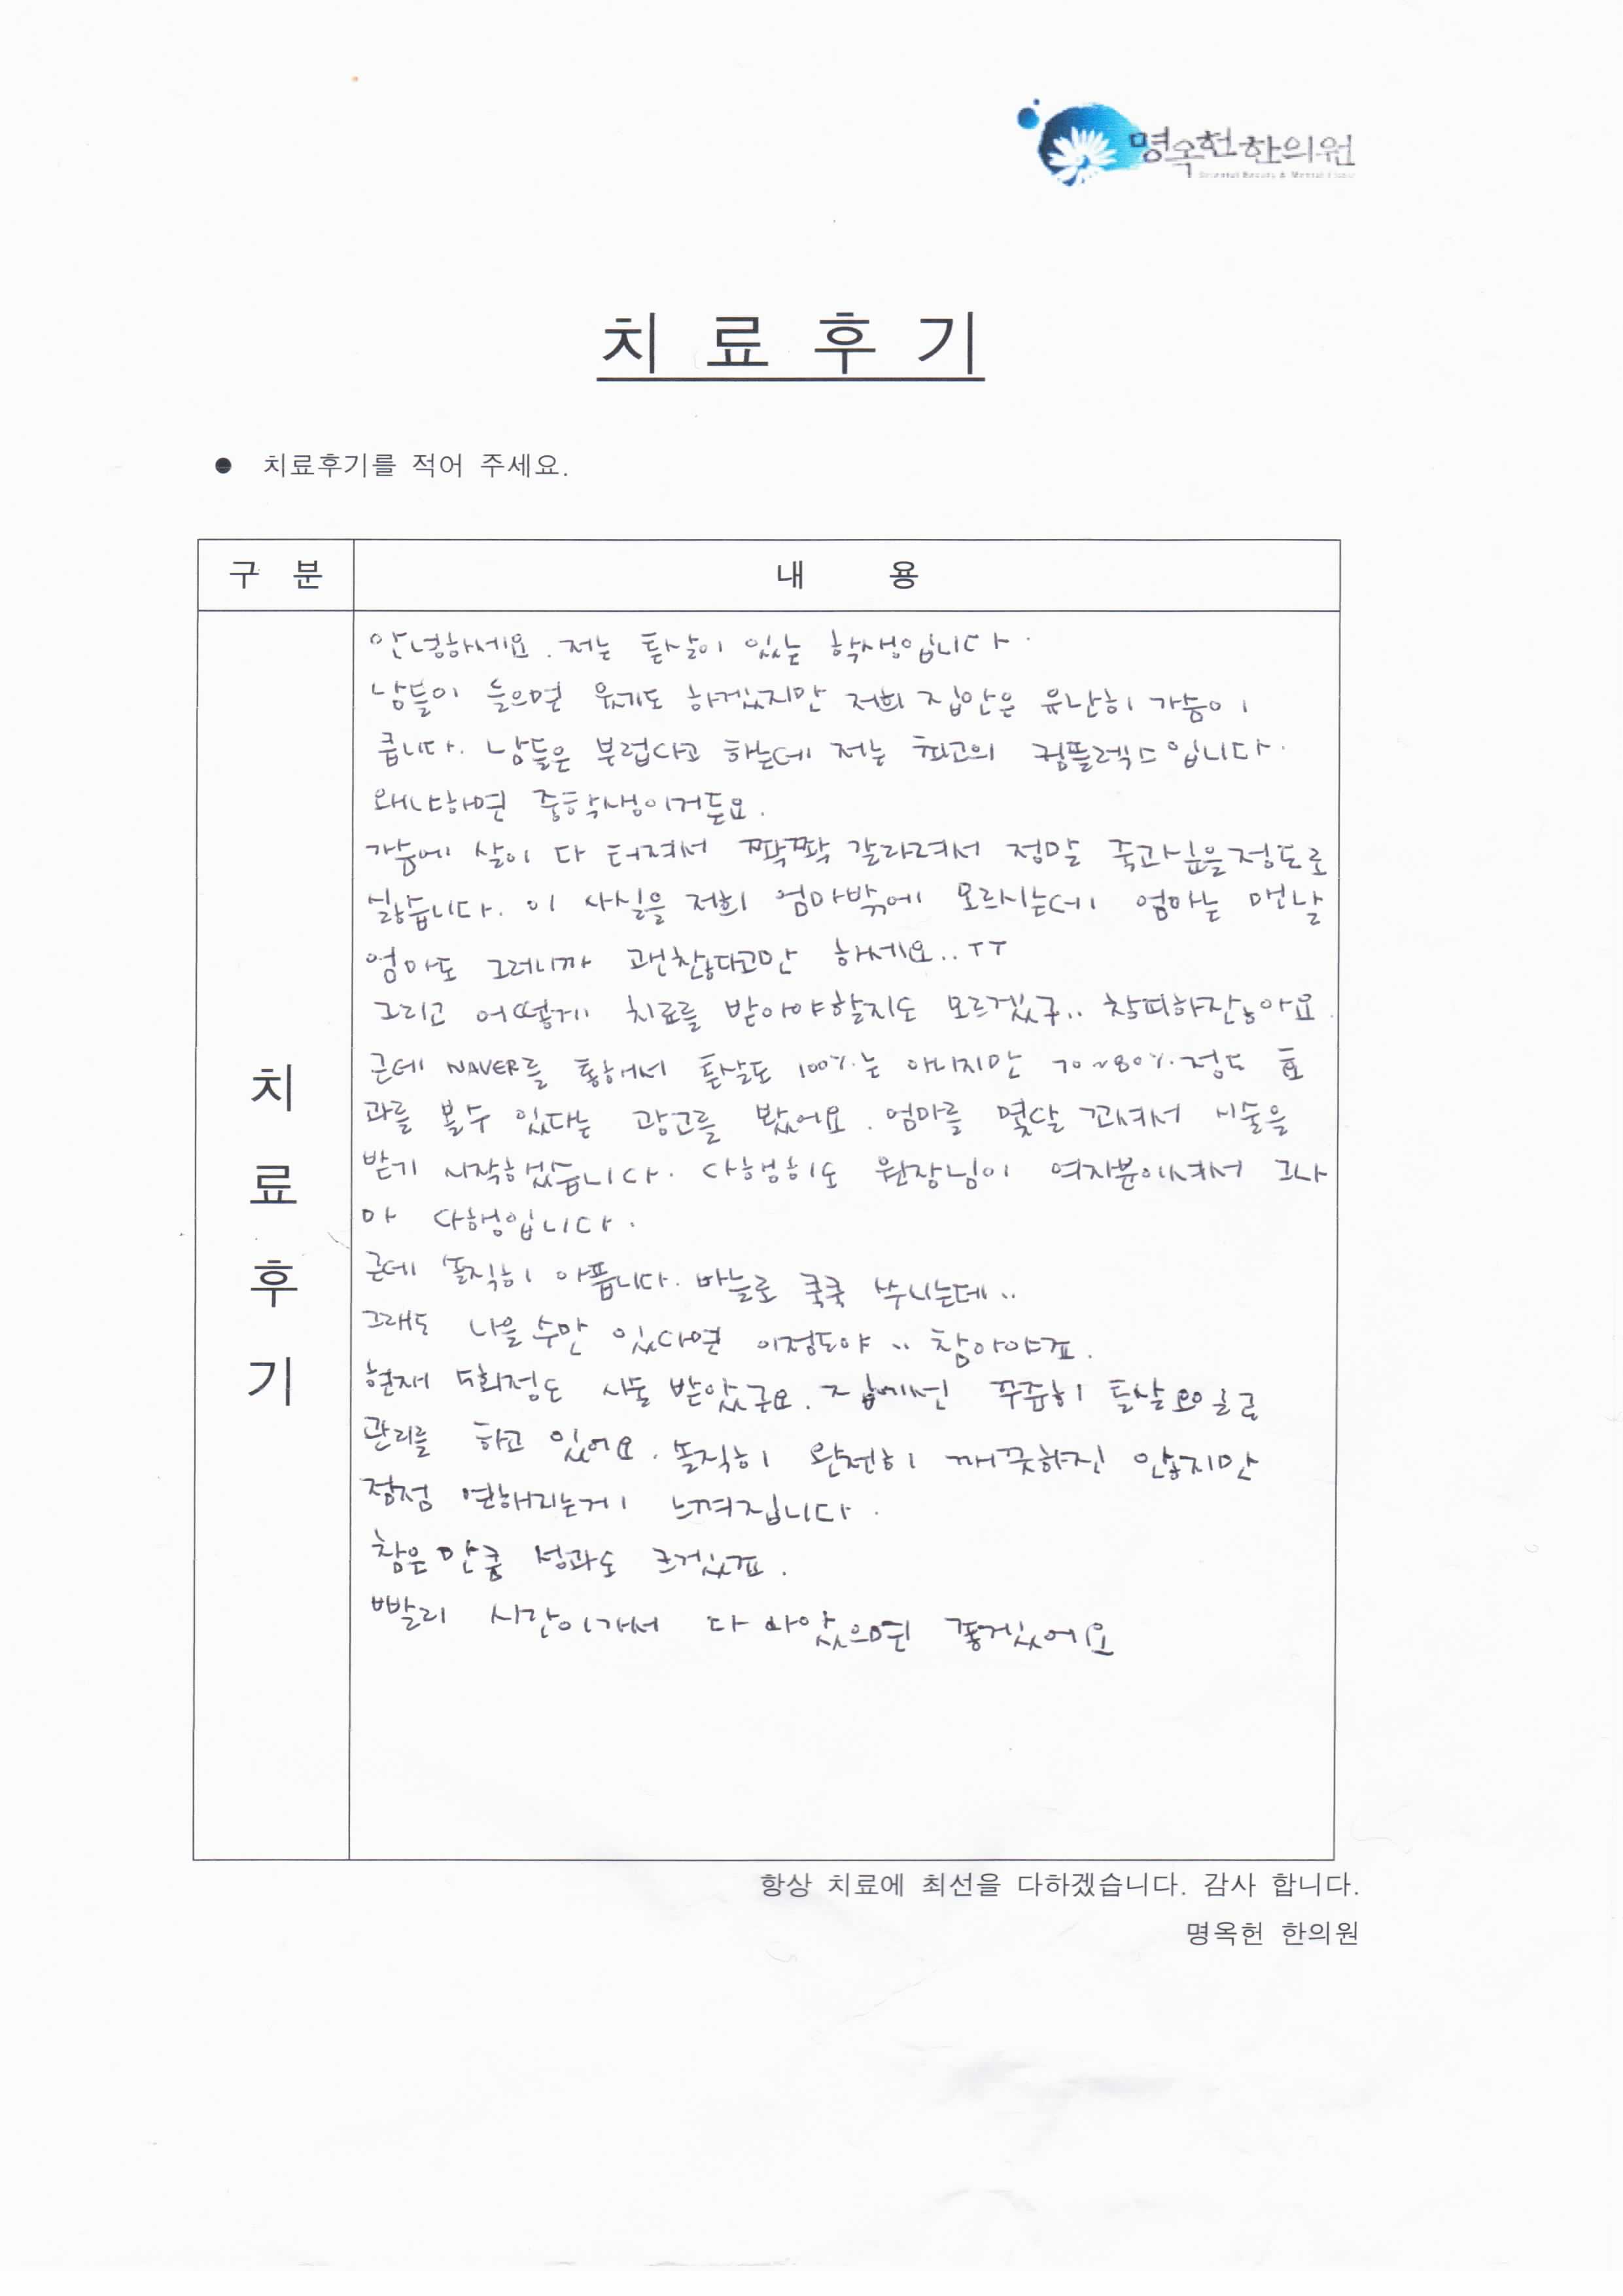 명옥헌한의원
치 료 후 기
● 치료후기를 적어 주세요.
구 분 내 용
안녕하세요. 저는 튼살이 있는 학생입니다.
남들이 들으면 웃기도 하겠지만 저희 집안은 유난히 가슴이
큽니다. 남들은 부럽다고 하는데 저는 최고의 컴플렉스입니다.
왜냐하면 중학생이거든요.
가슴에 살이 다 터져서 쫙쫙 갈라져서 정말 죽고싶을정도로
싫습니다. 이 사실을 저희 엄마밖에 모르시는데 엄마는 맨날
엄마도 그러니까 괜찮다고만 하세요..ㅜㅜ
그리고 어떻게 치료를 받아야할지도 모르겠구.. 창피하잖아요.
근데 NAVER를 통해서 튼살도 100%는 아니지만 70~80%정도 효
과를 볼수 있다는 광고를 봤어요. 엄마를 몇달 꼬셔서 시술을
받기 시작했습니다. 다행히도 원장님이 여자분이셔서 그나
마 다행입니다.
근데 솔직히 아픕니다. 바늘로 쿡쿡 쑤시는데..
그래도 나을 수만 있다면 이정도야.. 참아야죠.
현재 5회정도 시술 받았구요. 집에선 꾸준히 튼살
관리를 하고 있어요. 솔직히 완전히 깨끗하진 않지만
점점 연해지는게 느껴집니다.
참은만큼 성과도 크겠죠.
빨리 시간이가서 다 나았으면 좋겠어요
치
료
후
기
항상 치료에 최선을 다하겠습니다. 감사 합니다.
명옥헌 한의원